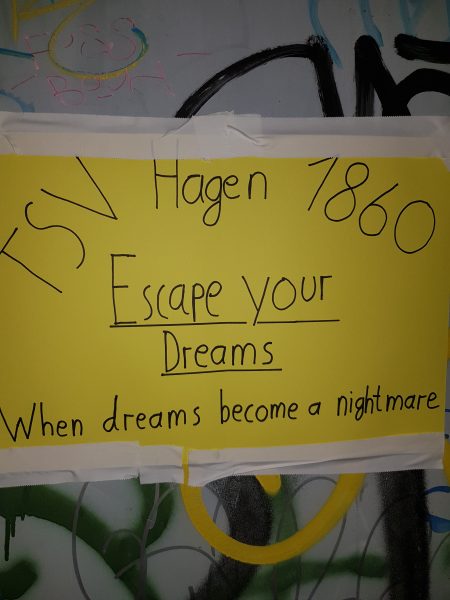 TSV Hagen 1860
Escape your
Dreams
When dreams become a nightmare